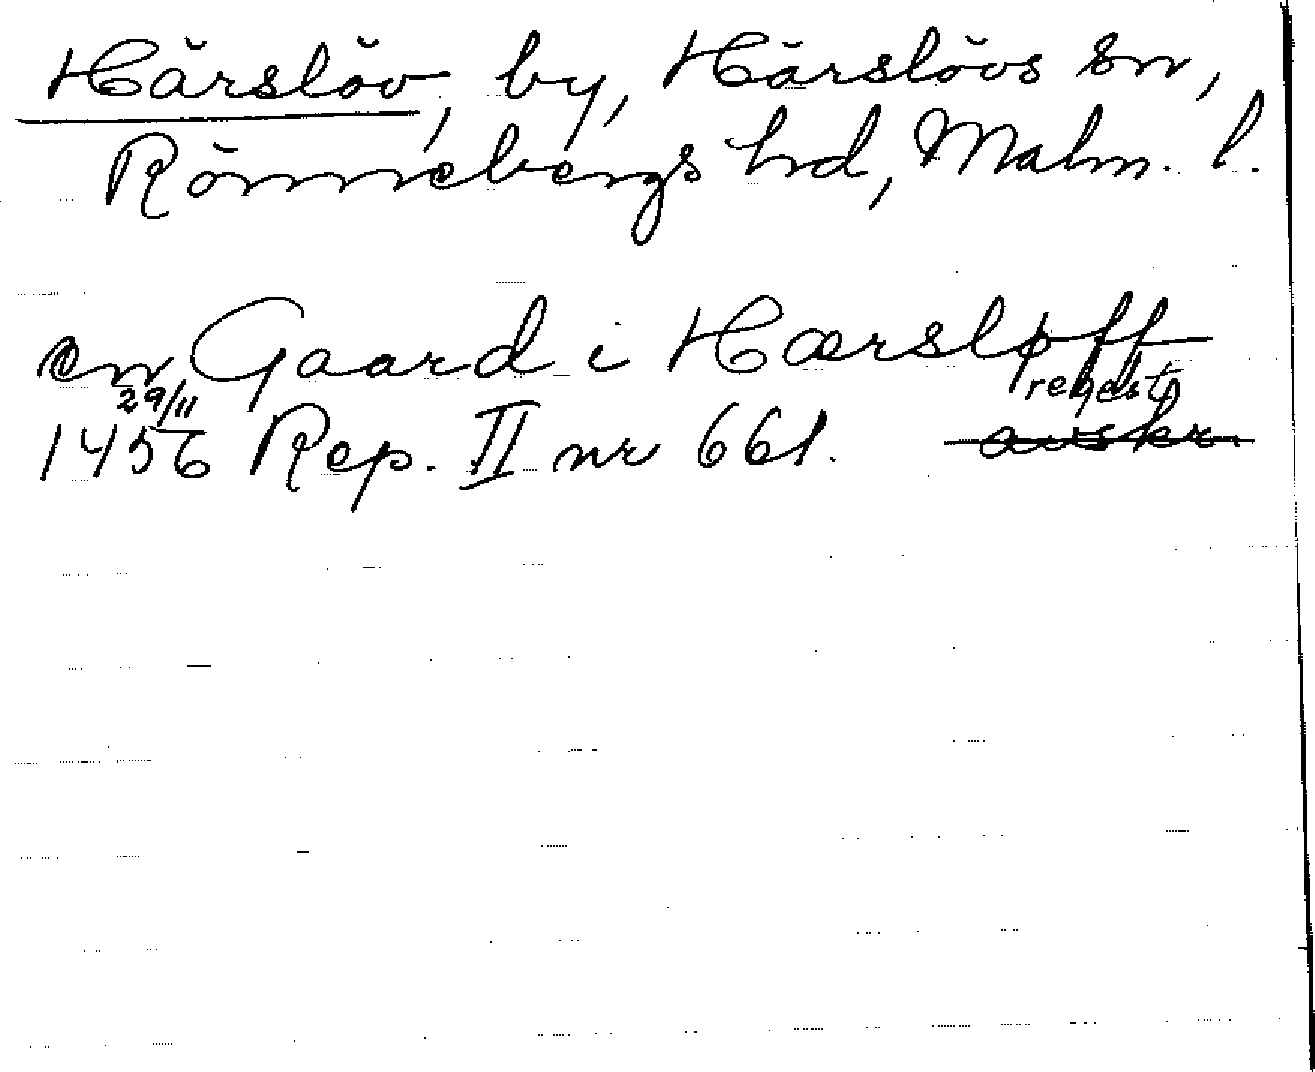 Härslöv, by, Härslövs sn,
Rönnebergs hd, Malm. l.
en Gaard i Hærsløff
29/11 regest
1456 Rep. II nr 661. avskr.